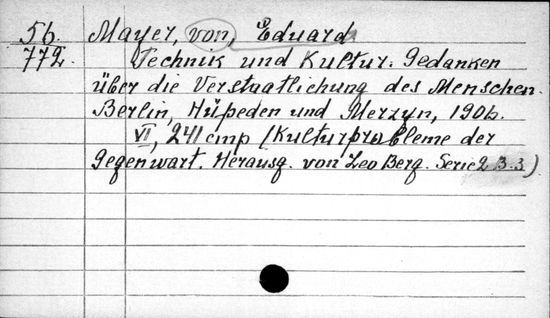 56. Mayer, von, Eduard
772. Technik und Kultur. Gedanken
über die Verstaatlichung des Menschen.
Berlin, Hüpeden und Merzyn, 1906.
VI, 241 стр (Kulturprobleme der
Gegenwart. Herausg. von Leo Berg. Serie 2 B. 3)